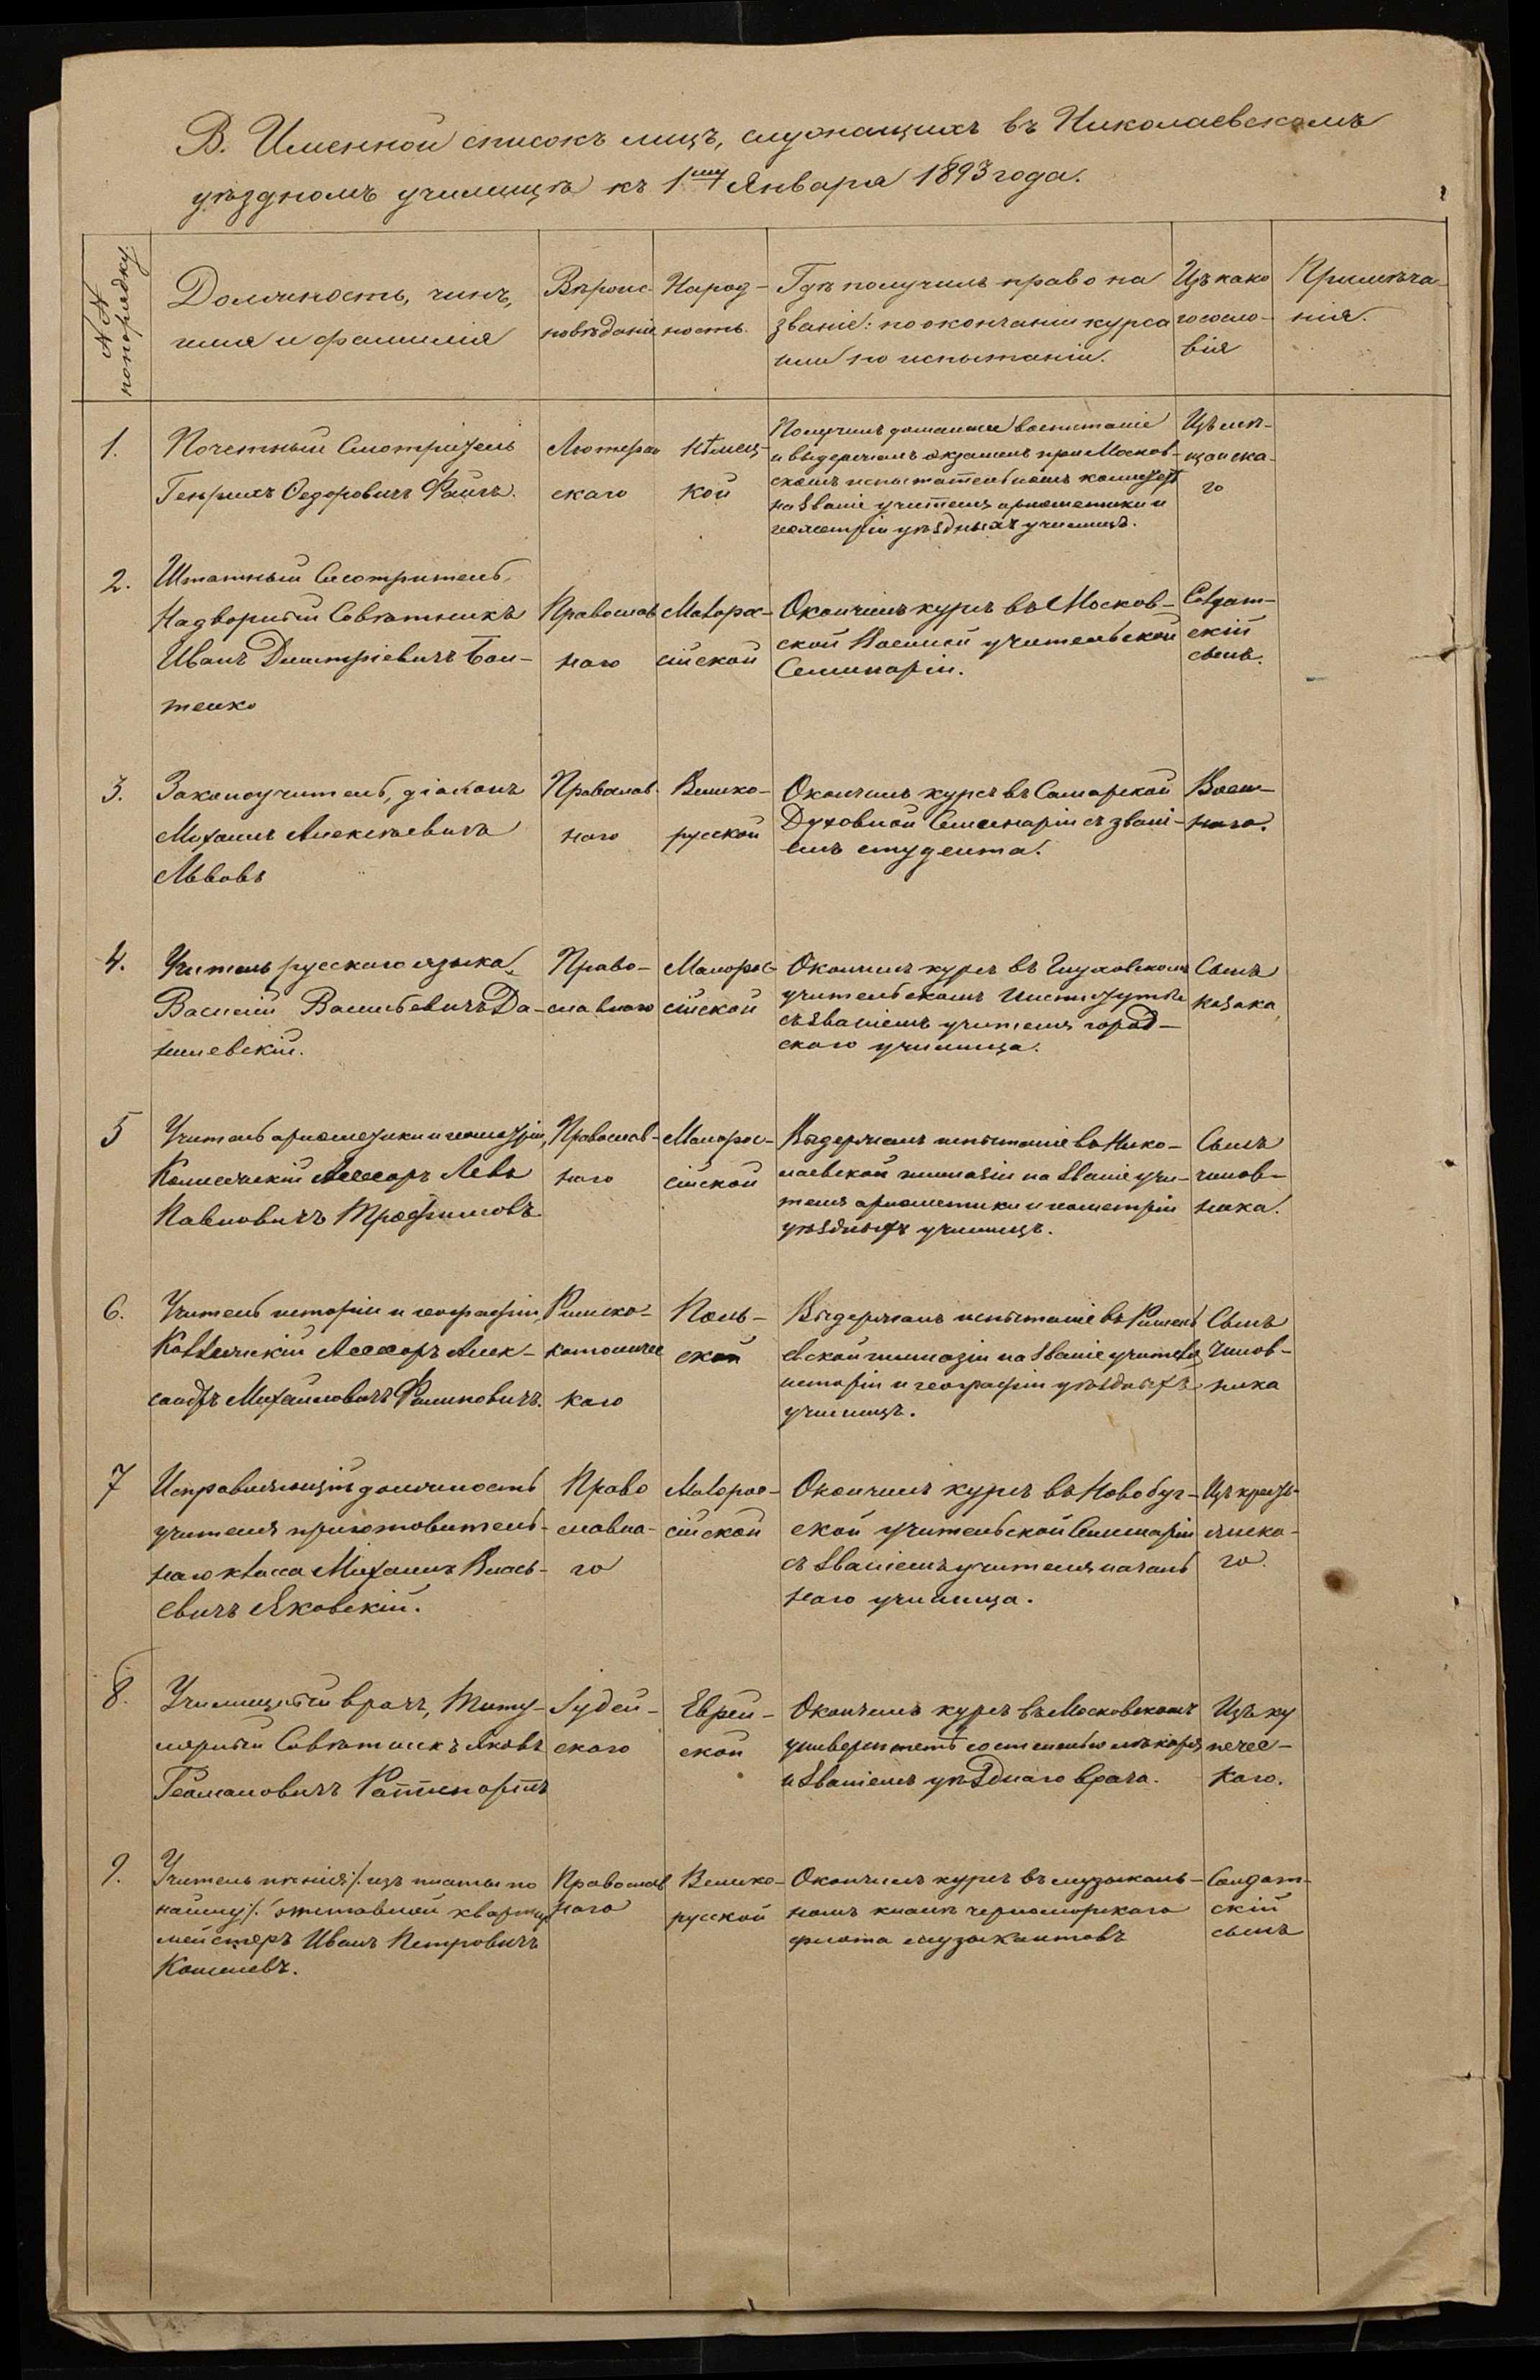 В. Именной списокъ лицъ, служащихъ въ Николаевскомъ
уѣздномъ училищѣ къ 1му Января 1893 года.
№№
попорядку.
Должность, чинъ,
имя и фамилія
Вѣроис-
повѣданіе
Народ-
ность.
Гдѣ получилъ право на
званіе: по окончаніи курса
или по испытаніи.
Изъ како
го сосло-
вія
Примѣча-
нія.
1.
Почетный Смотритель
Генрихъ Федоровичъ
Лютеран
скаго
Нѣмец-
кой
Получилъ домашнее воспитаніе
и выдержалъ экзаменъ при Москов-
скомъ испытательномъ комитетѣ
на званіе учителя ариөметики и
геометріи уѣздныхъ училищъ.
Изъ мѣ-
щанска-
го
2.
Штатный Смотритель,
Надворный Совѣтникъ
Иванъ Дмитріевичъ Бой-
тенко
Православ
наго
Малорос-
сійской
Окончилъ курсъ въ Москов-
ской Военной учительской
Семинаріи.
Солдат-
скій
сынъ.
3.
Законоучитель, діаконъ
Михаилъ Алексѣевичъ
Львовъ
Православ-
наго
Велико-
русской
Окончилъ курсъ въ Самарской
Духовной Семинаріи съ звані-
емъ студента.
Воен-
наго.
4.
Учитель русскаго языка,
Василій Васильевичъ Да-
нилевскій.
Право-
славнаго
Малорос-
сійской
Окончилъ курсъ въ Глуховскомъ
учительскомъ Институтѣ
съ званіемъ учителя город-
скаго училища.
Сынъ
казака
5
Учитель ариөметики и геометріи,
Коллежскій Ассесоръ Левъ
Павловичъ Трофимовъ.
Православ-
наго
Малорос-
сійской
Выдержалъ испытаніе въ Нико-
лаевской гимназіи на званіе учи-
теля ариөметики и геометріи
уѣздныхъ училищъ.
Сынъ
чинов-
ника.
6.
Учитель исторіи и географіи,
Коллежскій Ассесоръ Алек-
сандръ Михайловичъ Филиповичъ.
Римско-
католичес
каго
Поль-
ской
Выдержалъ испытаніе въ Ришель
евской гимназіи на званіе учителя
исторіи и географіи уѣздныхъ
училищъ.
Сынъ
Чинов-
ника
7
Исправляющій должность
учителя приготовитель-
наго класса Михаилъ Власъ-
евичъ Яковскій.
Право
славна-
го
Малорос-
сійской
Окончилъ курсъ въ Новобуг-
ской учительской Семинаріи
съ званіемъ учителя началь
наго училища.
Изъ кресть-
янска-
го.
8.
Училищный врачъ, Титу-
лярный Совѣтникъ Яковъ
Раппапортъ
Іудей-
скаго
Еврей-
ской
Окончилъ курсъ въ Московскомъ
университетѣ со степенью лѣкаря
и званіемъ уѣзднаго врача.
Изъ ку
печес-
каго.
9.
Учитель пѣнія /: изъ платы по
найму :/ отставной квартир
мейстеръ Иванъ Петровичъ
Кошелевъ.
Православ
наго
Велико-
русской
Окончилъ курсъ въ музыкаль-
номъ классѣ черноморскаго
флота музыкантовъ
Солдат-
скій
сынъ